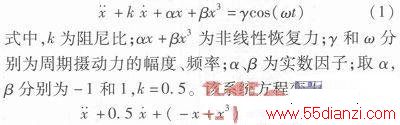 ẍ + k ẋ + αx + βx³ = γcos(ωt) (1)
式中，k 为阻尼比；αx + βx³ 为非线性恢复力；γ 和 ω 分
别为周期摄动力的幅度、频率；α、β 为实数因子；取 α，
β 分别为 -1 和 1，k = 0.5。该系统方程为
ẍ + 0.5 ẋ + ( -x + x³ )
www.55dianzi.com